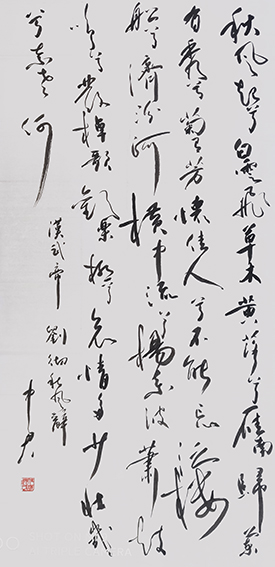 秋風起兮白雲飛草木黃落兮雁南歸蘭
有秀兮菊有芳懷佳人兮不能忘泛樓
船兮濟汾河橫中流兮揚素波蕭鼓
鳴兮發棹歌歡樂極兮哀情多少壯幾
兮奈老何
漢武帝
劉徹秋風辭